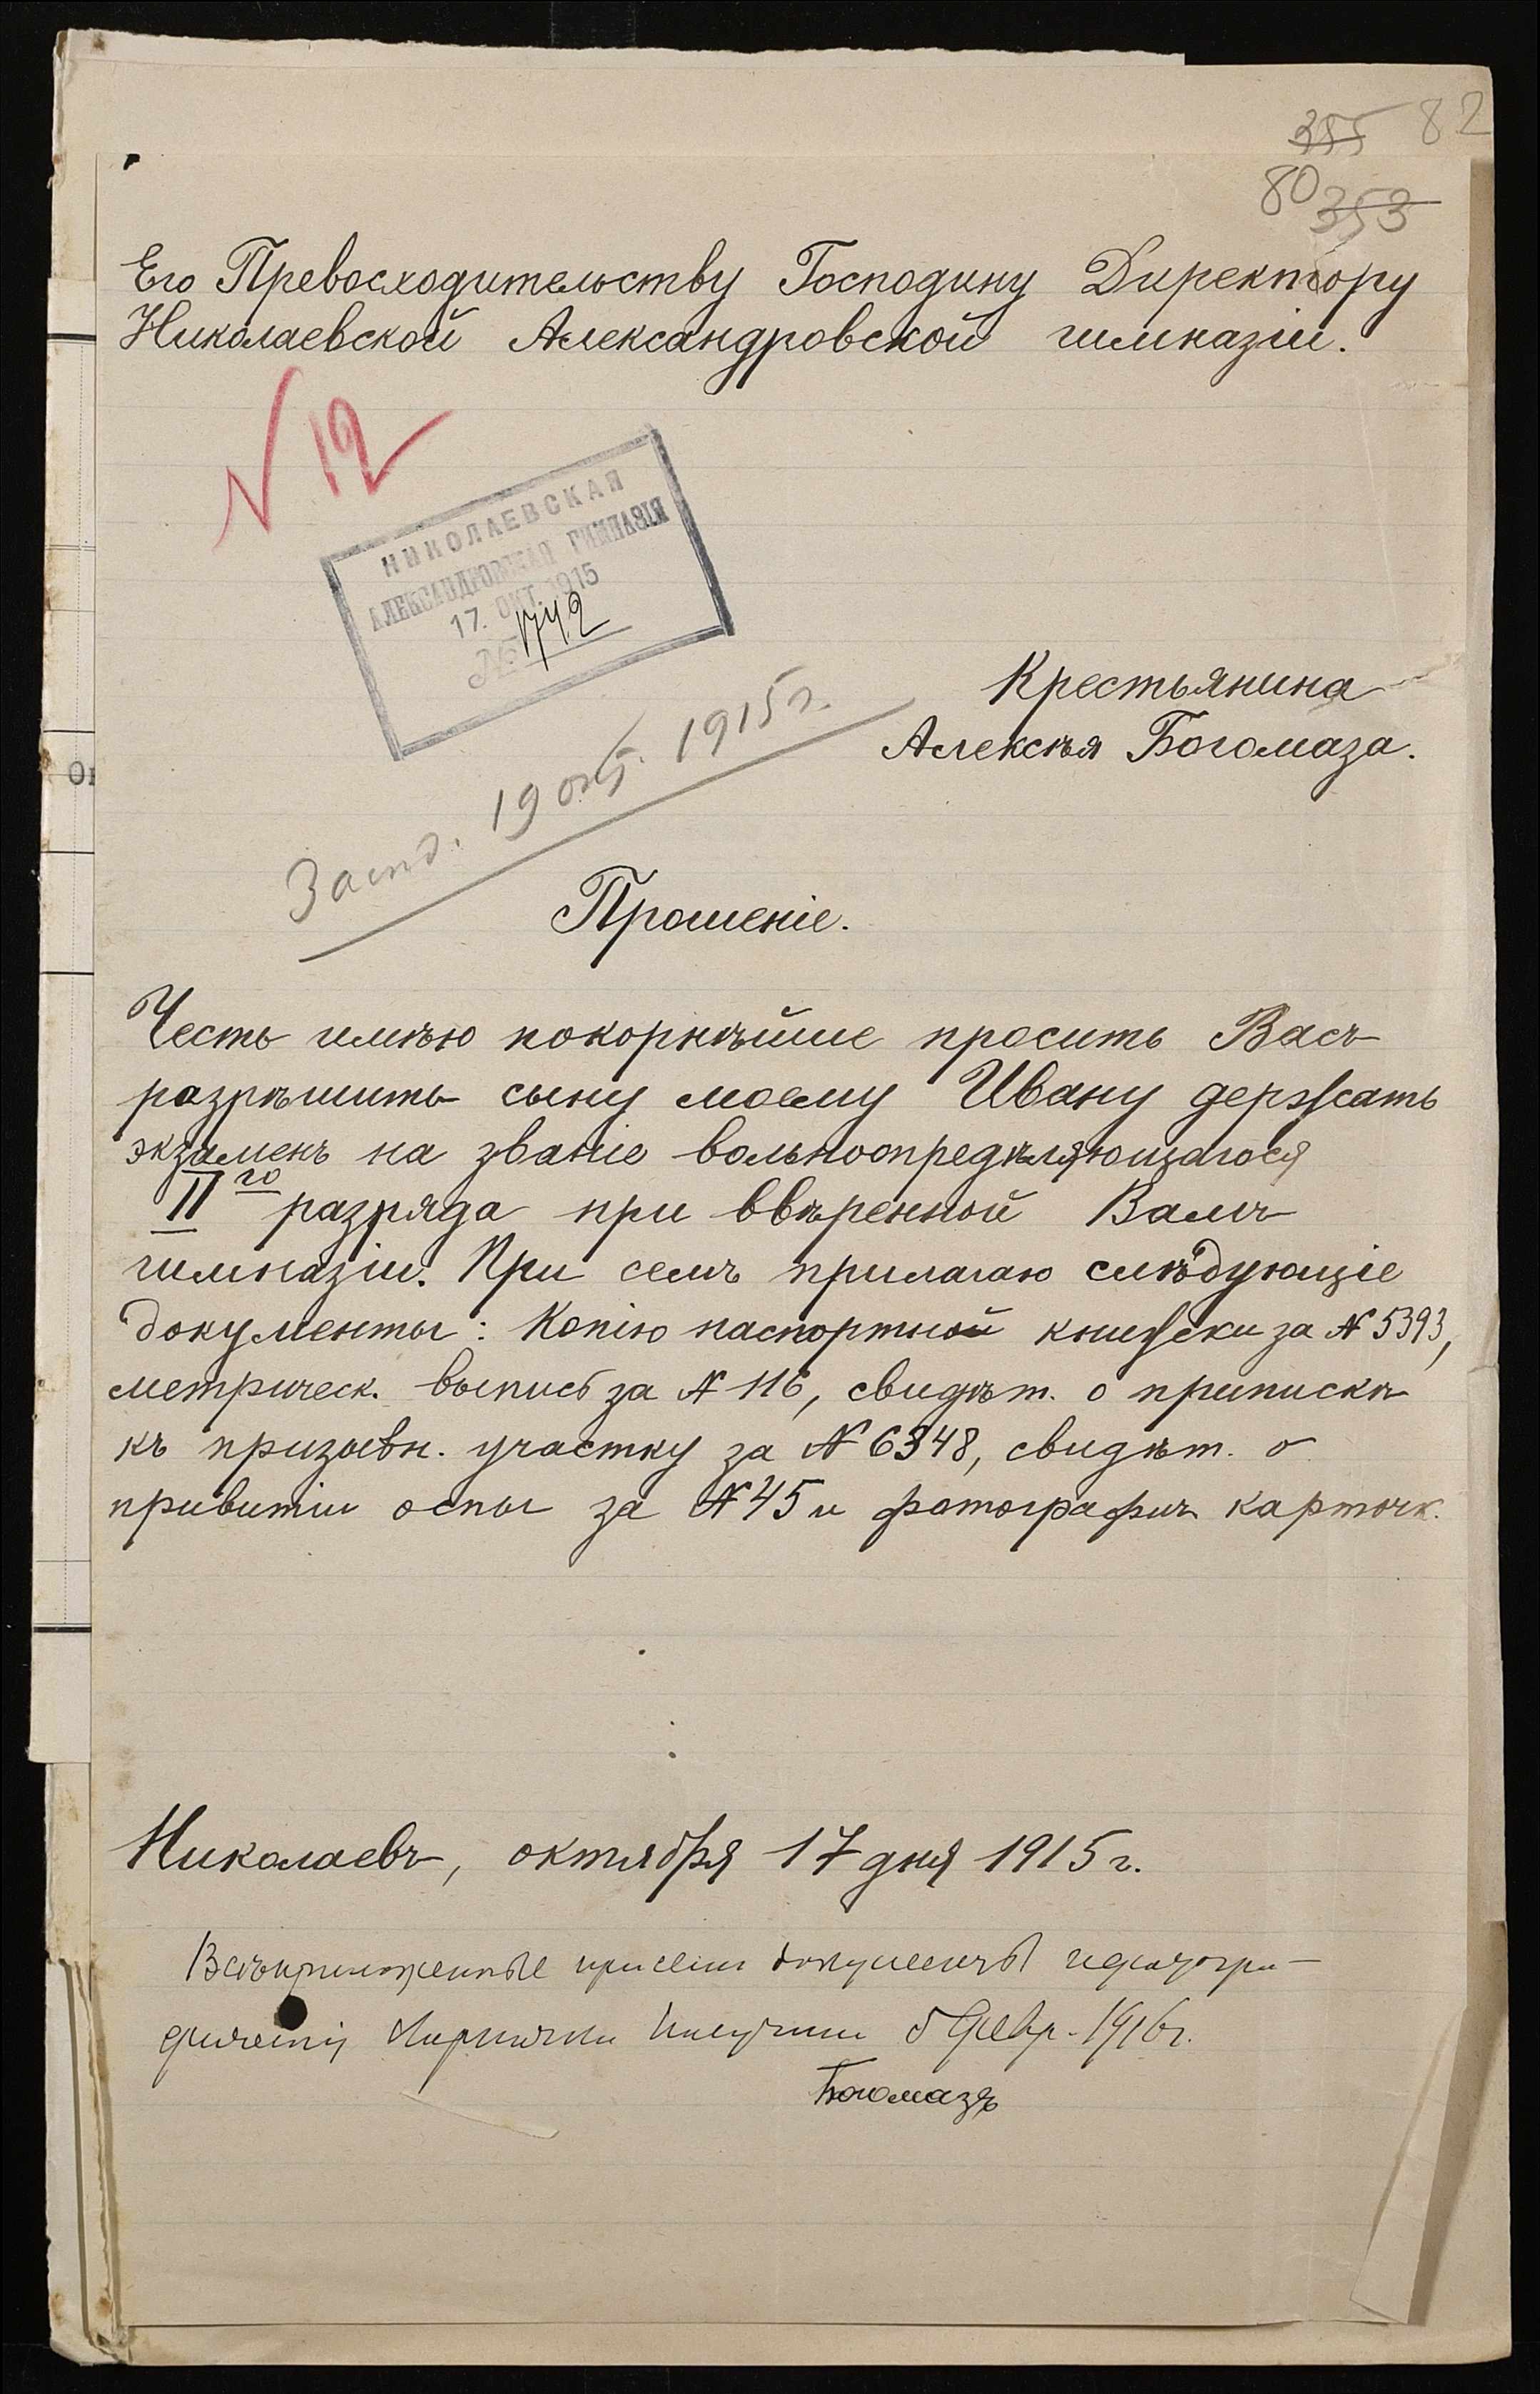 355 82
80 353
Его Превосходительству Господину Директору
Николаевской Александровской гимназіи.
№ 12
НИКОЛАЕВСКАЯ
АЛЕКСАНДРОВСКАЯ ГИМНАЗІЯ
17. ОКТ. 1915
№ 1742
Крестьянина
Алексѣя Богомаза.
Засѣд. 19 окт. 1915 г.
Прошеніе.
Честь имѣю покорнѣйше просить Васъ
разрѣшить сыну моему Ивану держать
экзаменъ на званіе вольноопредѣляющагося
II го разряда при ввѣренной Вамъ
гимназіи. При семъ прилагаю слѣдующіе
документы: Копію паспортной книжки за № 5393,
метрическ. выпись за № 116, свидѣт. о припискѣ
къ призывн. участку за № 6348, свидѣт. о
привитіи оспы за № 45 и фотографич. карточк.
Николаевъ, октября 17 дня 1915 г.
Всѣ приложенные при семъ документы и фотогра-
фическія карточки получилъ 5 Февр. 1916 г.
Богомазъ